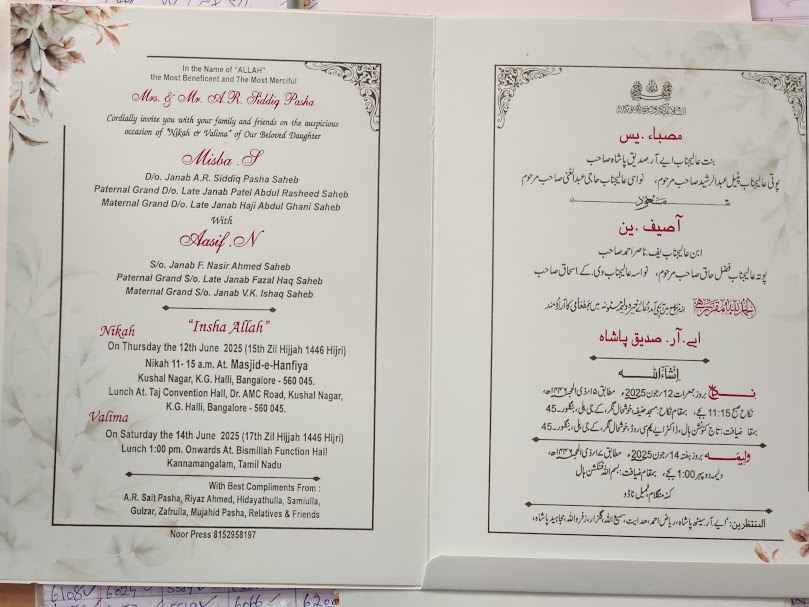 In the Name of "ALLAH"
the Most Beneficent and The Most Merciful
Mrs. & Mr. A.R. Siddiq Pasha
Cordially invite you with your family and friends on the auspicious
occasion of "Nikah & Valima" of Our Beloved Daughter
Misba .S
D/o. Janab A.R. Siddiq Pasha Saheb
Paternal Grand D/o. Late Janab Patel Abdul Rasheed Saheb
Maternal Grand D/o. Late Janab Haji Abdul Ghani Saheb
With
Aasif .N
S/o. Janab F. Nasir Ahmed Saheb
Paternal Grand S/o. Late Janab Fazal Haq Saheb
Maternal Grand S/o. Janab V.K. Ishaq Saheb
"Insha Allah"
Nikah
On Thursday the 12th June 2025 (15th Zil Hijjah 1446 Hijri)
Nikah 11- 15 a.m. At. Masjid-e-Hanfiya
Kushal Nagar, K.G. Halli, Bangalore - 560 045.
Lunch At. Taj Convention Hall, Dr. AMC Road, Kushal Nagar,
K.G. Halli, Bangalore - 560 045.
Valima
On Saturday the 14th June 2025 (17th Zil Hijjah 1446 Hijri)
Lunch 1:00 pm. Onwards At. Bismillah Function Hall
Kannamangalam, Tamil Nadu
With Best Compliments From :
A.R. Sait Pasha, Riyaz Ahmed, Hidayathulla, Samiulla,
Gulzar, Zafrulla, Mujahid Pasha, Relatives & Friends
Noor Press 8152958197
مصباء .یس
بنت عالیجناب اے.آر.صدیق پاشاہ صاحب
پوتی عالیجناب پٹیل عبدالرشید صاحب مرحوم، نواسی عالیجناب حاجی عبدالغنی صاحب مرحوم
مسعود
آصیف .ین
ابن عالیجناب یف. ناصر احمد صاحب
پوتہ عالیجناب فضل حاق صاحب مرحوم، نواسہ عالیجناب وی.کے.اسحاق صاحب
اے.آر. صدیق پاشاہ
انشاءاللہ
نکاح بروز جمعرات 12/جون 2025ء مطابق ۱۵/ذی الحجہ ۱۴۴۶ھ،
نکاح صبح 11:15 بجے، بمقام نکاح: مسجد حنفیہ خوشحال نگر، کے جی ہلی، بنگلور۔45
بمقام ضیافت: تاج کنونشن ہال، ڈاکٹر اے یم سی روڈ، خوشحال نگر، کے جی ہلی، بنگلور۔45
ولیمہ بروز ہفتہ 14/جون 2025ء مطابق ۱۷/ذی الحجہ ۱۴۴۶ھ،
ولیمہ دوپہر 1:00 بجے، بمقام ضیافت: بسم اللہ فنکشن ہال
کنمنگلام، ٹمل ناڈو
المنتظرین: اے.آر.سیٹھ پاشاہ، ریاض احمد، ہدایت، سمیع اللہ، گلزار، زفراللہ، مجاہید پاشاہ،
6108 6024
6066 6200